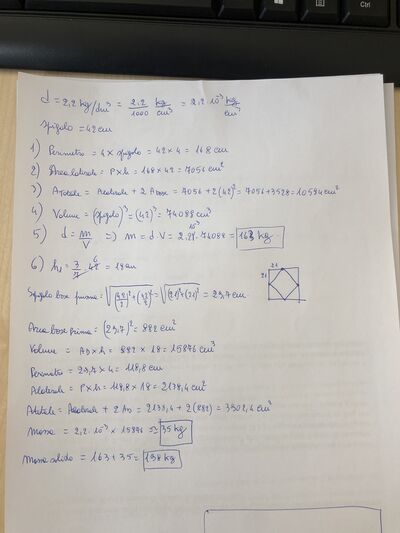 d = 2,2 kg/dm³ = 2,2/1000 kg/cm³ = 2,2 10⁻³ kg/cm³
spigolo = 42 cm
1) Perimetro = 4 × spigolo = 42 × 4 = 168 cm
2) Area laterale = P × h = 168 × 42 = 7056 cm²
3) A totale = A laterale + 2 A base = 7056 + 2 (42)² = 7056 + 3528 = 10584 cm²
4) Volume = (spigolo)³ = (42)³ = 74088 cm³
5) d = m/V => m = d · V = 2,2 · 10⁻³ · 74088 = 163 kg
6) h₁ = 3/7 · 42 6 = 18 cm
21
21
Spigolo base prisma = √(42/2)² + (42/2)² = √(21)² + (21)² = 29,7 cm
Area base prisma = (29,7)² = 882 cm²
Volume = Ab × h = 882 × 18 = 15876 cm³
Perimetro = 29,7 × 4 = 118,8 cm
A laterale = P × h = 118,8 × 18 = 2138,4 cm²
A totale = A laterale + 2 Ab = 2138,4 + 2 (882) = 3902,4 cm²
Massa = 2,2 · 10⁻³ × 15876 ≅ 35 kg
Massa solido = 163 + 35 = 198 kg
Alt
Ctrl